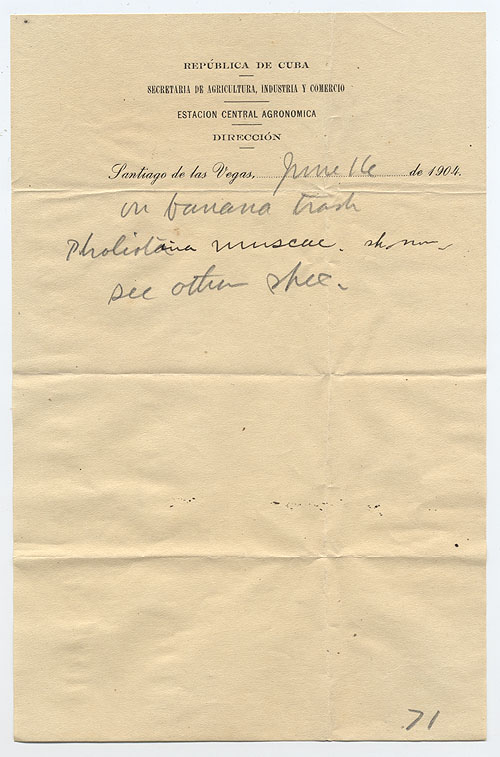 REPÚBLICA DE CUBA
SECRETARIA DE AGRICULTURA, INDUSTRIA Y COMERCIO
ESTACION CENTRAL AGRONOMICA
DIRECCIÓN
Santiago de las Vegas, June 16 de 1904.
on banana trash
muscae.
see other
71